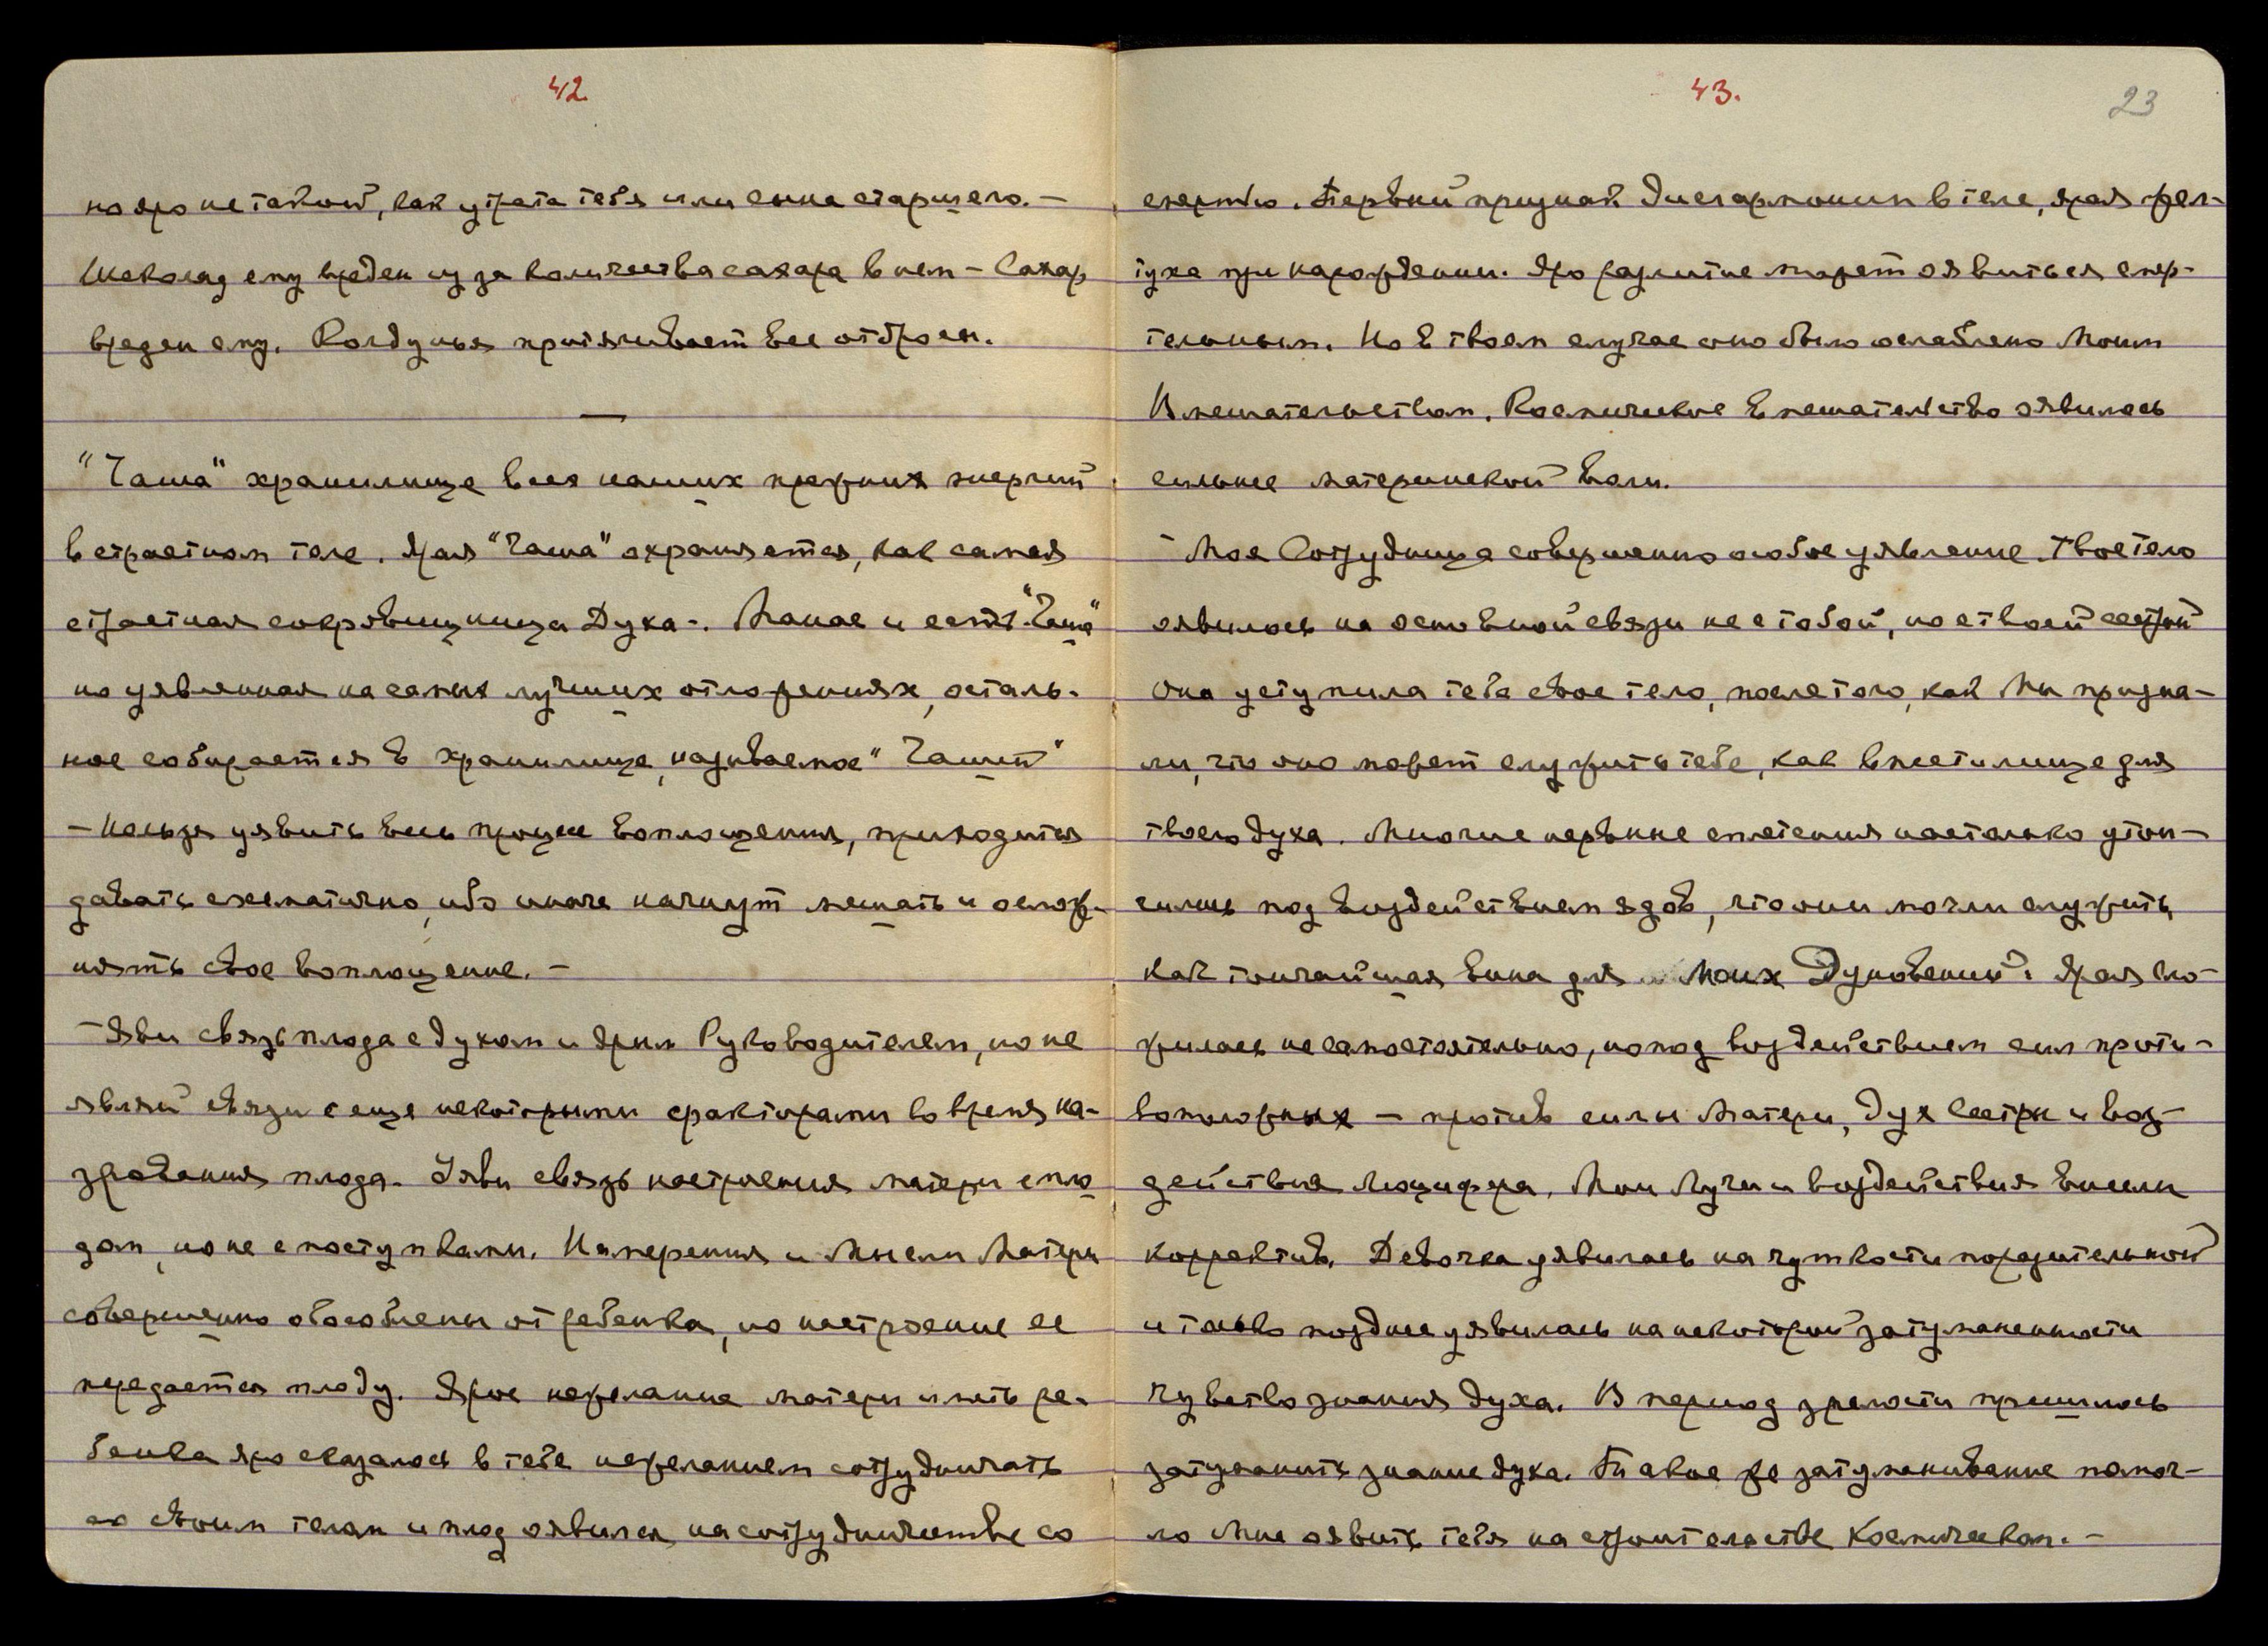 42.
но яро не такой, как утрата тебя или сына старшего. –
Шоколад ему вреден из за количества сахара в нем – Сахар
вреден ему. Колдунья притягивает все отбросы.
—
"Чаша" хранилище всех наших прежних энергий
в страстном теле. Ярая "Чаша" охраняется, как самая
страстная сокровищница Духа –. Манас и есть "Чаша"
но уявленная на самых лучших отложениях, осталь-
ное собирается в хранилище, называемое "Чашей"
– Нельзя уявить весь процесс воплощения, приходится
давать схематично, ибо иначе начнут мешать и ослож-
нять свое воплощение. –
– Яви связь плода с духом и ярым Руководителем, но не
являй связи с еще некоторыми факторами во время на-
зревания плода. Уяви связь настроения матери с пло-
дом, но не с поступками. Намерения и Мысли Матери
совершенно обособлены от ребенка, но настроение ее
передается плоду. Ярое нежелание матери иметь ре-
бенка яро сказалось в тебе нежеланием сотрудничать
со своим телом и плод оявился на сотрудничестве со
43.
23
смертью. Первый признак дисгармонии в теле, ярая жел-
туха при нарождении. Яро разлитие может оявиться смер-
тельным. Но в твоем случае оно было ослаблено Моим
Вмешательством. Космическое вмешательство оявилось
сильнее материнской воли.
– Моя Сотрудница совершенно особое уявление. Твое тело
оявилось на основной связи не с тобой, но с твоей сестрой
Она уступила тебе свое тело, после того, как Мы призна-
ли, что оно может служить тебе, как вместилище для
твоего духа. Многие нервные сплетения настолько утон-
чились под воздействием ядов, что они могли служить,
как тончайшая вина для Моих Дуновений. Ярая сло-
жилась не самостоятельно, но под воздействием сил проти-
воположных – против силы Матери, дух Сестры и воз-
действия Люцифера. Мои Лучи и воздействия внесли
корректив. Девочка уявилась на чуткости поразительной
и только позднее уявилась на некоторой затуманенности
чувствознания духа. В период зрелости пришлось
затуманить знание духа. Такое же затуманивание помог-
ло Мне оявить тебя на строительстве Космическом. –